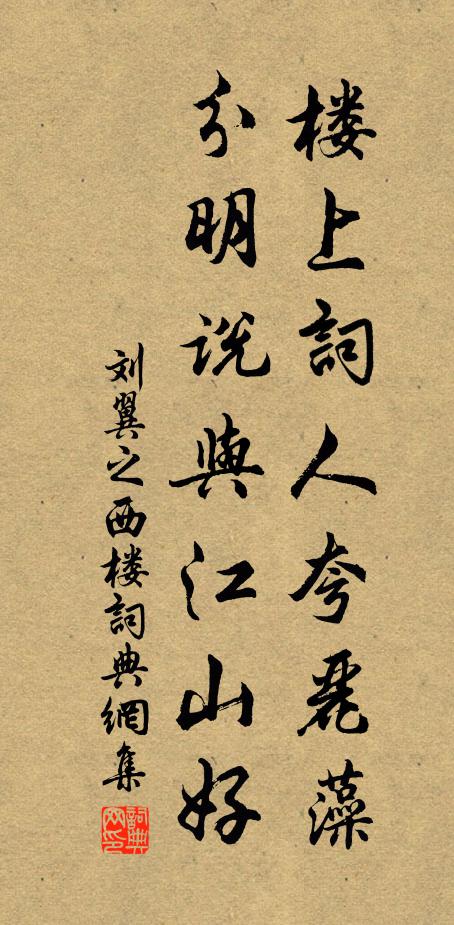 楼上詞人夸麗藻
分明説與江山好
刘翼之西楼詞典網集
詞典网印